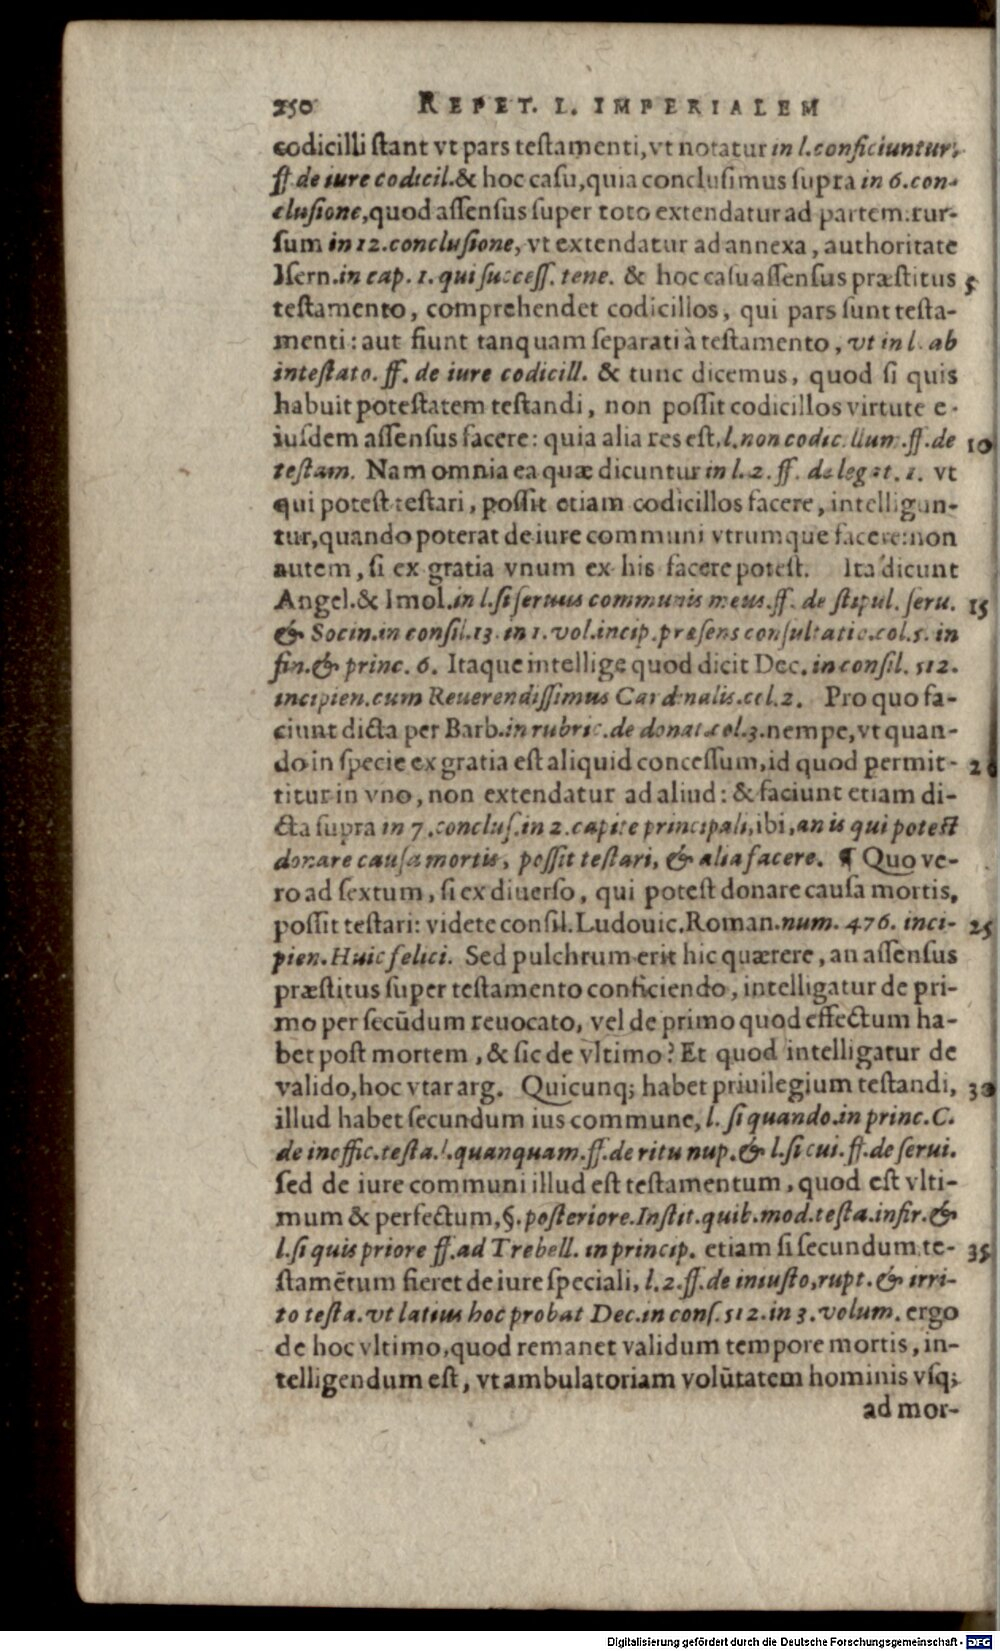 250 REPET. L. IMPERIALEM
codicilli stant vt pars testamenti, vt notatur in l. conficiuntur,
ff. de iure codicil. & hoc casu, quia conclusimus supra in 6. con-
clusione, quod assensus super toto extendatur ad partem: rur-
sum in 12. conclusione, vt extendatur ad annexa, authoritate
Isern. in cap. 1. qui success. tene. & hoc casu assensus præstitus 5
testamento, comprehendet codicillos, qui pars sunt testa-
menti: aut fiunt tanquam separati à testamento, vt in l. ab
intestato. ff. de iure codicill. & tunc dicemus, quod si quis
habuit potestatem testandi, non possit codicillos virtute e-
iusdem assensus facere: quia alia res est, l. non codicillum. ff. de 10
testam. Nam omnia ea quæ dicuntur in l. 2. ff. de legat. 1. vt
qui potest testari, possit etiam codicillos facere, intelligun-
tur, quando poterat de iure communi vtrumque facere: non
autem, si ex gratia vnum ex his facere potest. Ita dicunt
Angel. & Imol. in l. si seruus communis meus. ff. de stipul. seru. 15
& Socin. in consil. 13. in 1. vol. incip. præsens consultatio. col. 5. in
fin. & princ. 6. Itaque intellige quod dicit Dec. in consil. 512.
incipien. cum Reuerendissimus Cardinalis. col. 2. Pro quo fa-
ciunt dicta per Barb. in rubric. de donat. col. 3. nempe, vt quan-
do in specie ex gratia est aliquid concessum, id quod permit- 20
titur in vno, non extendatur ad aliud: & faciunt etiam di-
cta supra in 7. conclus. in 2. capite principali, ibi, an is qui potest
donare causa mortis, possit testari, & alia facere. ¶ Quo ve-
ro ad sextum, si ex diuerso, qui potest donare causa mortis,
possit testari: videte consil. Ludouic. Roman. num. 476. inci- 25
pien. Huic felici. Sed pulchrum erit hic quærere, an assensus
præstitus super testamento conficiendo, intelligatur de pri-
mo per secūdum reuocato, vel de primo quod effectum ha-
bet post mortem, & sic de vltimo? Et quod intelligatur de
valido, hoc vtar arg. Quicunq; habet priuilegium testandi, 30
illud habet secundum ius commune, l. si quando. in princ. C.
de inoffic. testa. l. quanquam. ff. de ritu nup. & l. si cui. ff. de serui.
sed de iure communi illud est testamentum, quod est vlti-
mum & perfectum, §. posteriore. Instit. quib. mod. testa. infir. &
l. si quis priore ff. ad Trebell. in princip. etiam si secundum te- 35
stamētum fieret de iure speciali, l. 2. ff. de iniusto, rupt. & irri-
to testa. vt latius hoc probat Dec. in cons. 512. in 3. volum. ergo
de hoc vltimo, quod remanet validum tempore mortis, in-
telligendum est, vt ambulatoriam volūtatem hominis vsq;
ad mor-
Digitalisierung gefördert durch die Deutsche Forschungsgemeinschaft - DFG